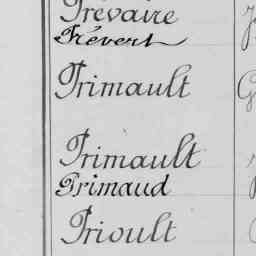 Prévaire
Prévert
Primault
Primault
Primaud
Prioult